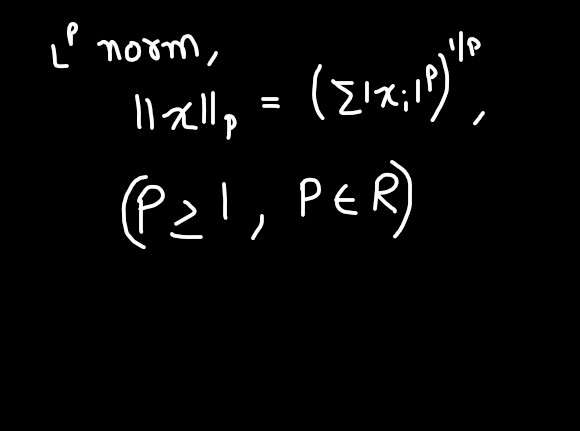 L^p norm,
||x||_p = (Σ|x_i|^p)^{1/p},
(P ≥ 1, P ∈ R)